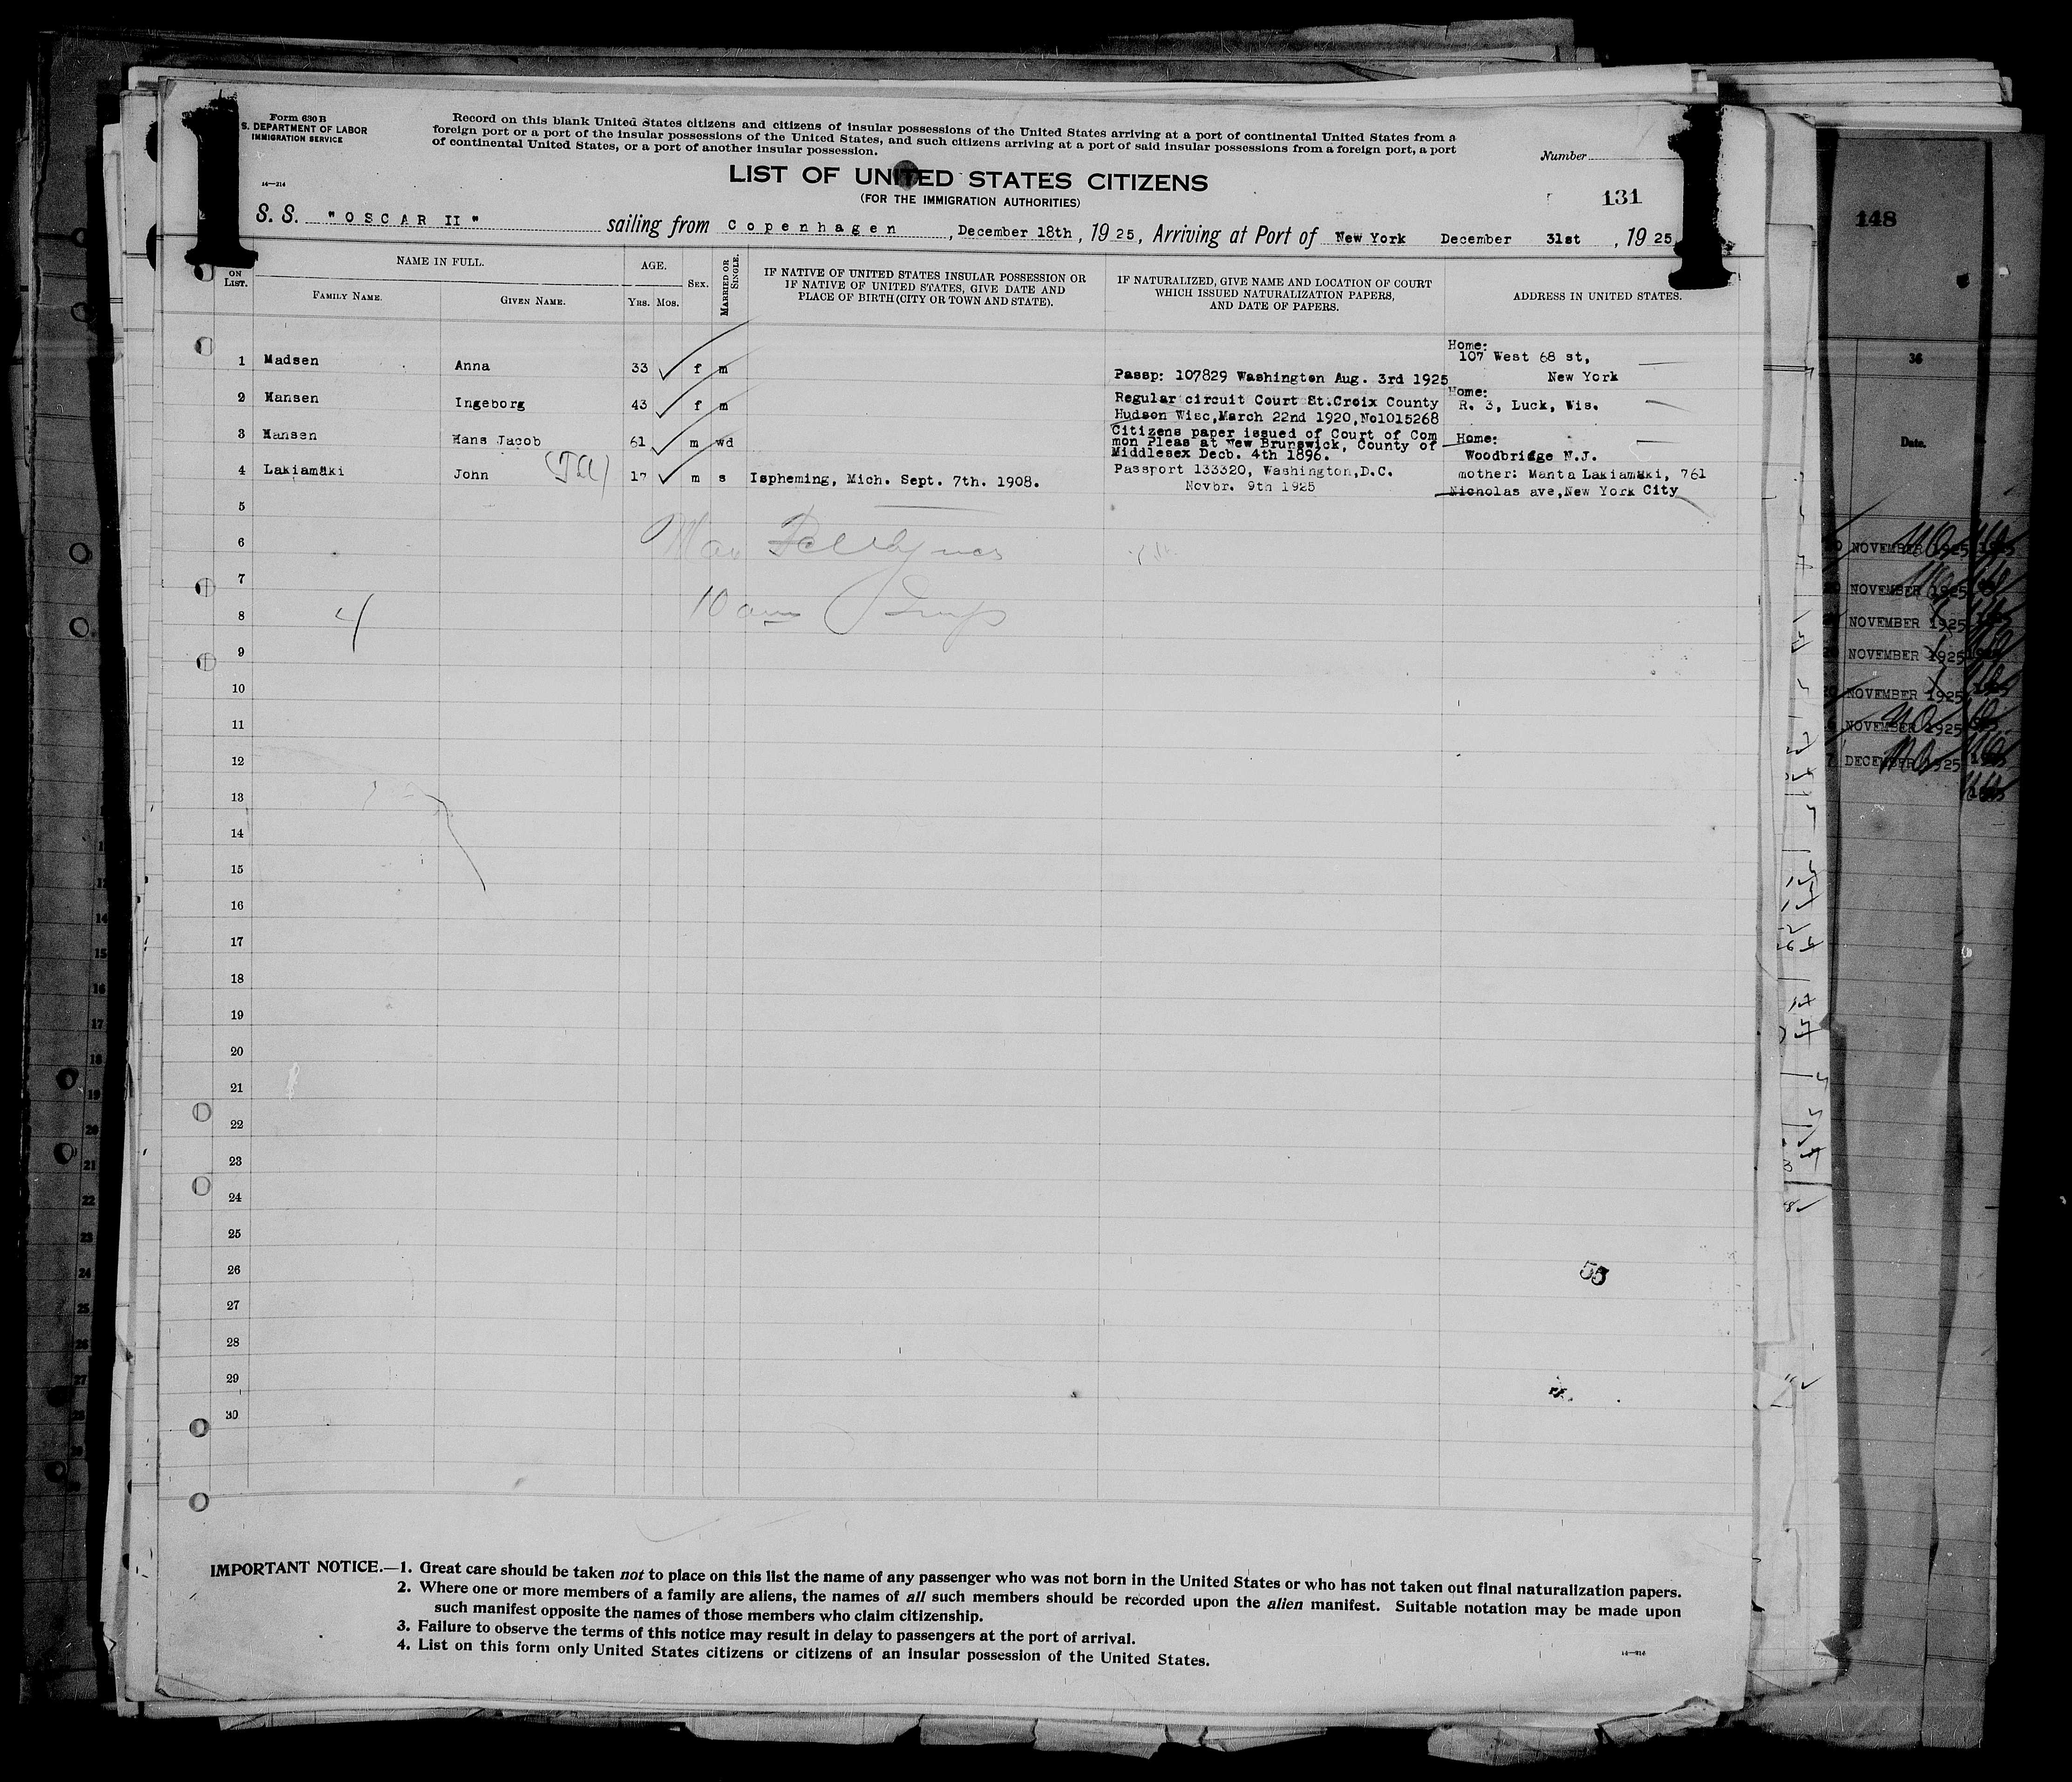 Form 630 B
S. DEPARTMENT OF LABOR
IMMIGRATION SERVICE
Record on this blank United States citizens and citizens of insular possessions of the United States arriving at a port of continental United States from a
foreign port or a port of the insular possessions of the United States, and such citizens arriving at a port of said insular possessions from a foreign port, a port
of continental United States, or a port of another insular possession.
Number
14—214
LIST OF UNITED STATES CITIZENS
(FOR THE IMMIGRATION AUTHORITIES)
131
148
S. S. "OSCAR II" sailing from Copenhagen, December 18th, 1925, Arriving at Port of New York December 31st, 1925
ON LIST.
NAME IN FULL.
FAMILY NAME.
GIVEN NAME.
AGE.
YRS. MOS.
SEX.
MARRIED OR SINGLE.
IF NATIVE OF UNITED STATES INSULAR POSSESSION OR
IF NATIVE OF UNITED STATES, GIVE DATE AND
PLACE OF BIRTH (CITY OR TOWN AND STATE).
IF NATURALIZED, GIVE NAME AND LOCATION OF COURT
WHICH ISSUED NATURALIZATION PAPERS,
AND DATE OF PAPERS.
ADDRESS IN UNITED STATES.
1 Madsen Anna 33 f m Passp: 107829 Washington Aug. 3rd 1925
Home:
107 West 68 st,
New York
2 Hansen Ingeborg 43 f m Regular circuit Court St.Croix County
Hudson Wisc,March 22nd 1920,No1015268
Home:
R. 3, Luck, Wis.
3 Hansen Hans Jacob 61 m wd Citizens paper issued of Court of Com
mon Pleas at New Brunswick, County of
Middlesex Decb. 4th 1896.
Home:
Woodbridge N.J.
4 Lakiamäki John 17 m s Ispheming, Mich. Sept. 7th. 1908. Passport 133320, Washington,D.C.
Novbr. 9th 1925
mother: Manta Lakiamäki, 761
Nicholas ave,New York City
5
6
7
10 am
8
4
9
10
11
12
13
14
15
16
17
18
19
20
21
22
23
24
25
26
55
27
28
29
30
36
Date.
NOVEMBER 1925
NOVEMBER 1925
NOVEMBER 1925
NOVEMBER 1925
NOVEMBER 1925
NOVEMBER 1925
DECEMBER 1925
IMPORTANT NOTICE.—1. Great care should be taken not to place on this list the name of any passenger who was not born in the United States or who has not taken out final naturalization papers.
2. Where one or more members of a family are aliens, the names of all such members should be recorded upon the alien manifest. Suitable notation may be made upon
such manifest opposite the names of those members who claim citizenship.
3. Failure to observe the terms of this notice may result in delay to passengers at the port of arrival.
4. List on this form only United States citizens or citizens of an insular possession of the United States.
14—214